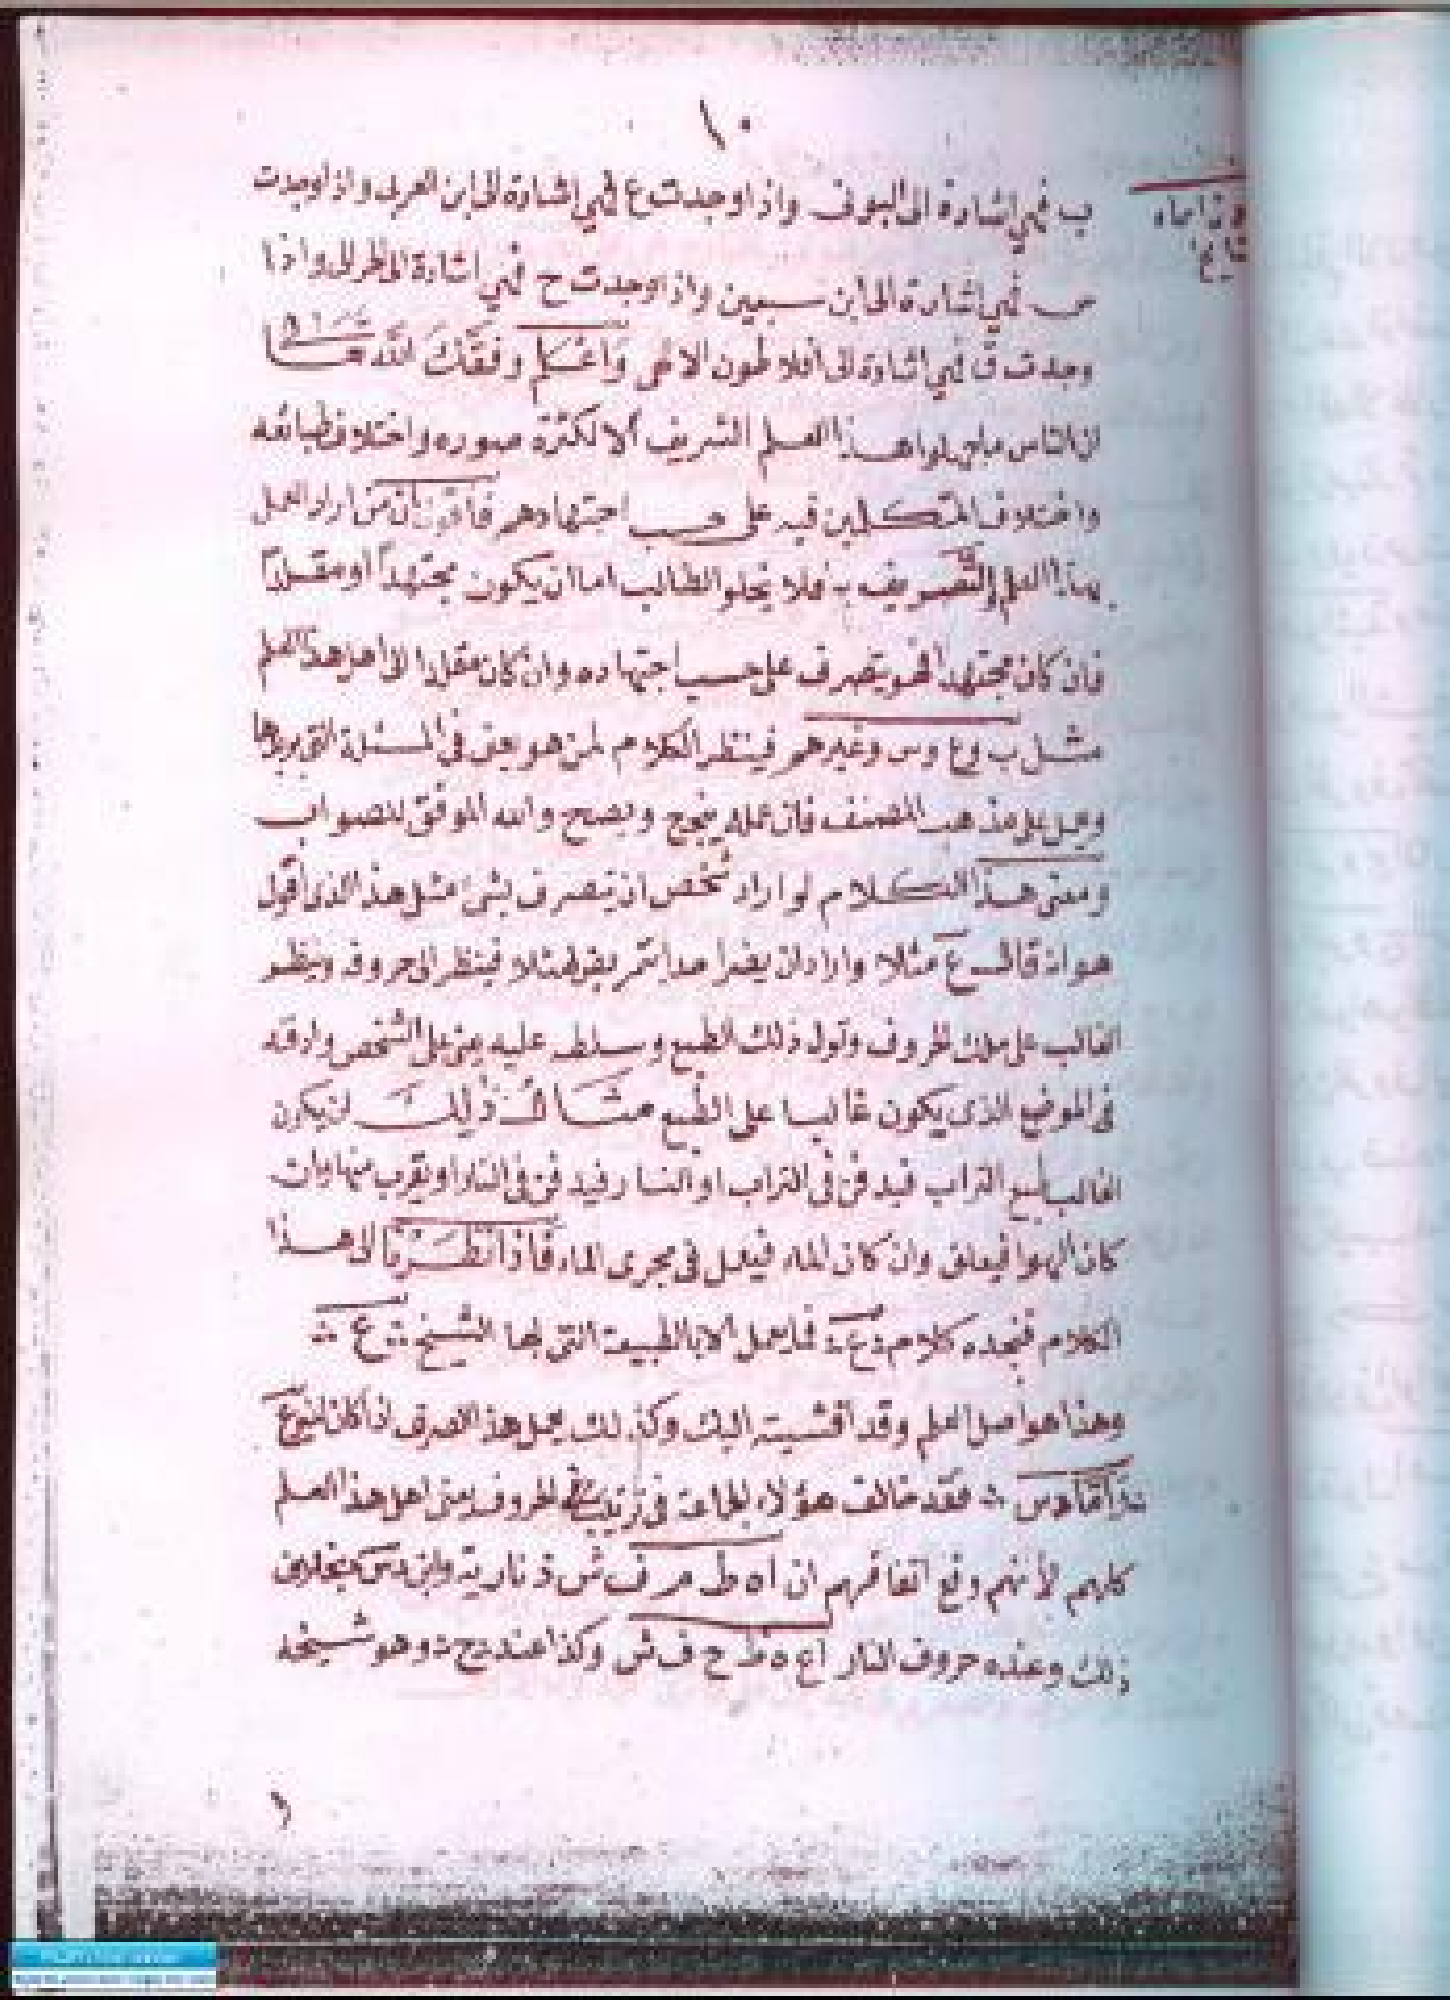 ١٠
ب فهي اشارة الى البوني واذا وجدت ع فهي اشارة الى ابن العربي واذا وجدت
س فهي اشارة الى ابن سبعين واذا وجدت ح فهي اشارة الى الحرالي واذا
وجدت ق فهي اشارة الى افلاطون الالهي وَاعْلَم وفقك الله تعالى
ان الناس ما هذا العلم الشريف الا لكثرة صوره واختلاف طبائعه
واختلاف المتكلمين فيه على حسب اجتهادهم فأقول ان من اراد العمل
بهذا العلم والتصريف به فلا يخلو الطالب اما ان يكون مجتهداً او مقلداً
فان كان مجتهداً فهو يتصرف على حسب اجتهاده وان كان مقلدا الى اهل هذا العلم
مثل ب وع وس وغيرهم فينظر الكلام لمن هو يعني في المسئلة التي يريدها
ويعمل على مذهب المصنف فان عمله ينجح ويصح والله الموفق للصواب
ومعنى هذا الكلام لو اراد شخص ان يتصرف بشئ مثل هذا الذي اقول
هو اذ قال ع مثلا واراد ان يضر احدا مثلا فينظر الى حروفه وينظر
الغالب على ملك الحروف وتول ذلك الطبع وسلطه عليه يعني على الشخص وادفنه
في الموضع الذي يكون غالبا على الطبع مثال ذلك ان يكون
الغالب طبع التراب فيدفن في التراب او النار فيدفن في النار او يقرب منها وان
كان الهوا فيعلق وان كان الماء فيعمل في مجرى الماء فاذا نظرنا الى هذا
الكلام فنجده كلام ع فلا يعمل الا بالطبيعة التي لها الشيخ ع
وهذا هو اصل العلم وقد افشيته اليك وكذلك يعمل هذا التصرف اذا كان
واما س فقد خالف هؤلاء الجماعة في ترتيب الحروف يعني اهل هذا العلم
كلهم لأنهم وقع اتفاقهم ان ا ه ط م ف ش ذ نارية وابن س بخلاف
ذلك وعنده حروف النار ا ع ه ط ح ف ش وكذا عند ح وهو شيخه